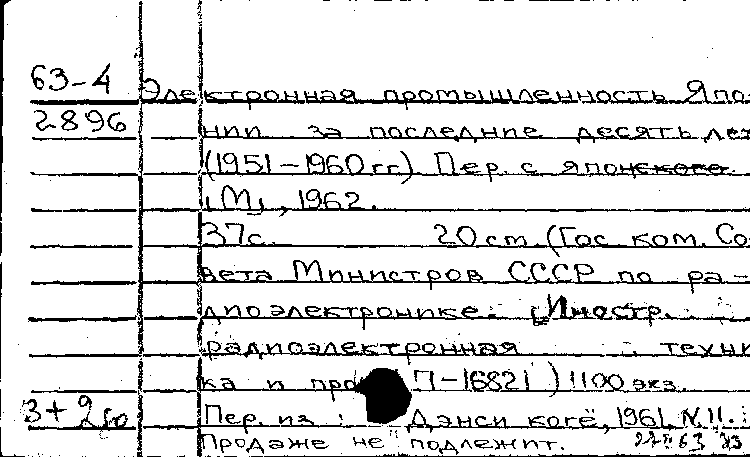 63-4 Электронная промышленность Япо-
2896 нии за последние десять лет
(1951-1960гг) Пер. с японского.
[М], 1962.
37с. 20 см. (Гос ком. Со-
вета Министров СССР по ра-
диоэлектронике. [Иностр.
радиоэлектронная техни
ка и про П-16821) 1100 экз.
3+2 Пер. из: Дэнси когё, 1961, N11.
Продаже не подлежит. 63